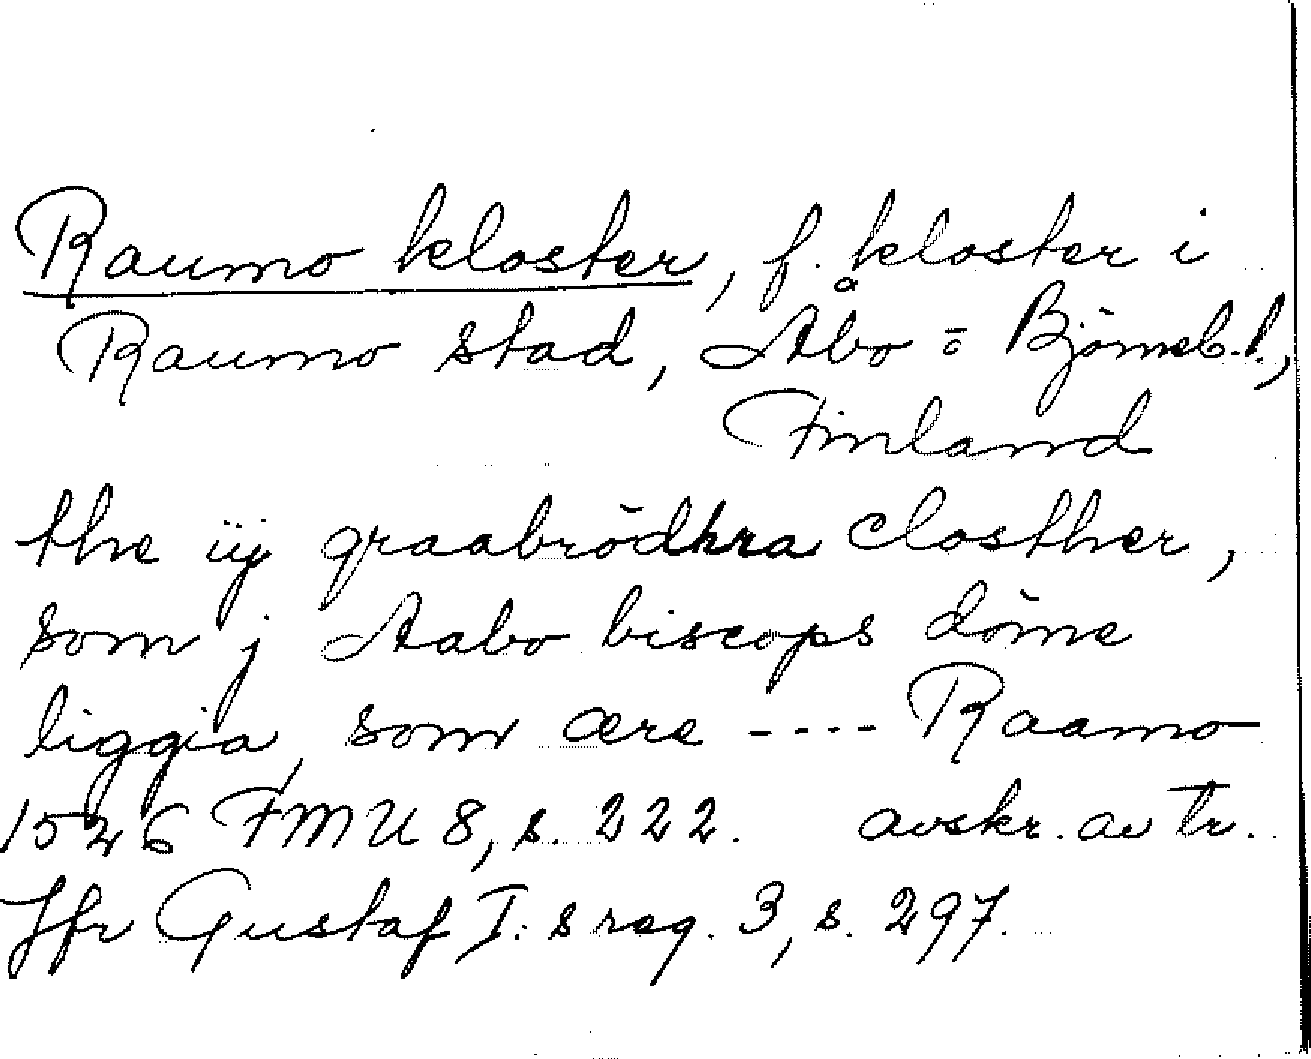 Raumo kloster, f. kloster i
Raumo stad, Åbo - Björneb. l.,
Finland
the iij graabrödhra closther,
som j Aabo biscops döme
liggia, som ære ---- Raamo
1526 FMU 8, s. 222. avskr. av tr.
Jfr Gustaf I: s reg. 3, s. 297.